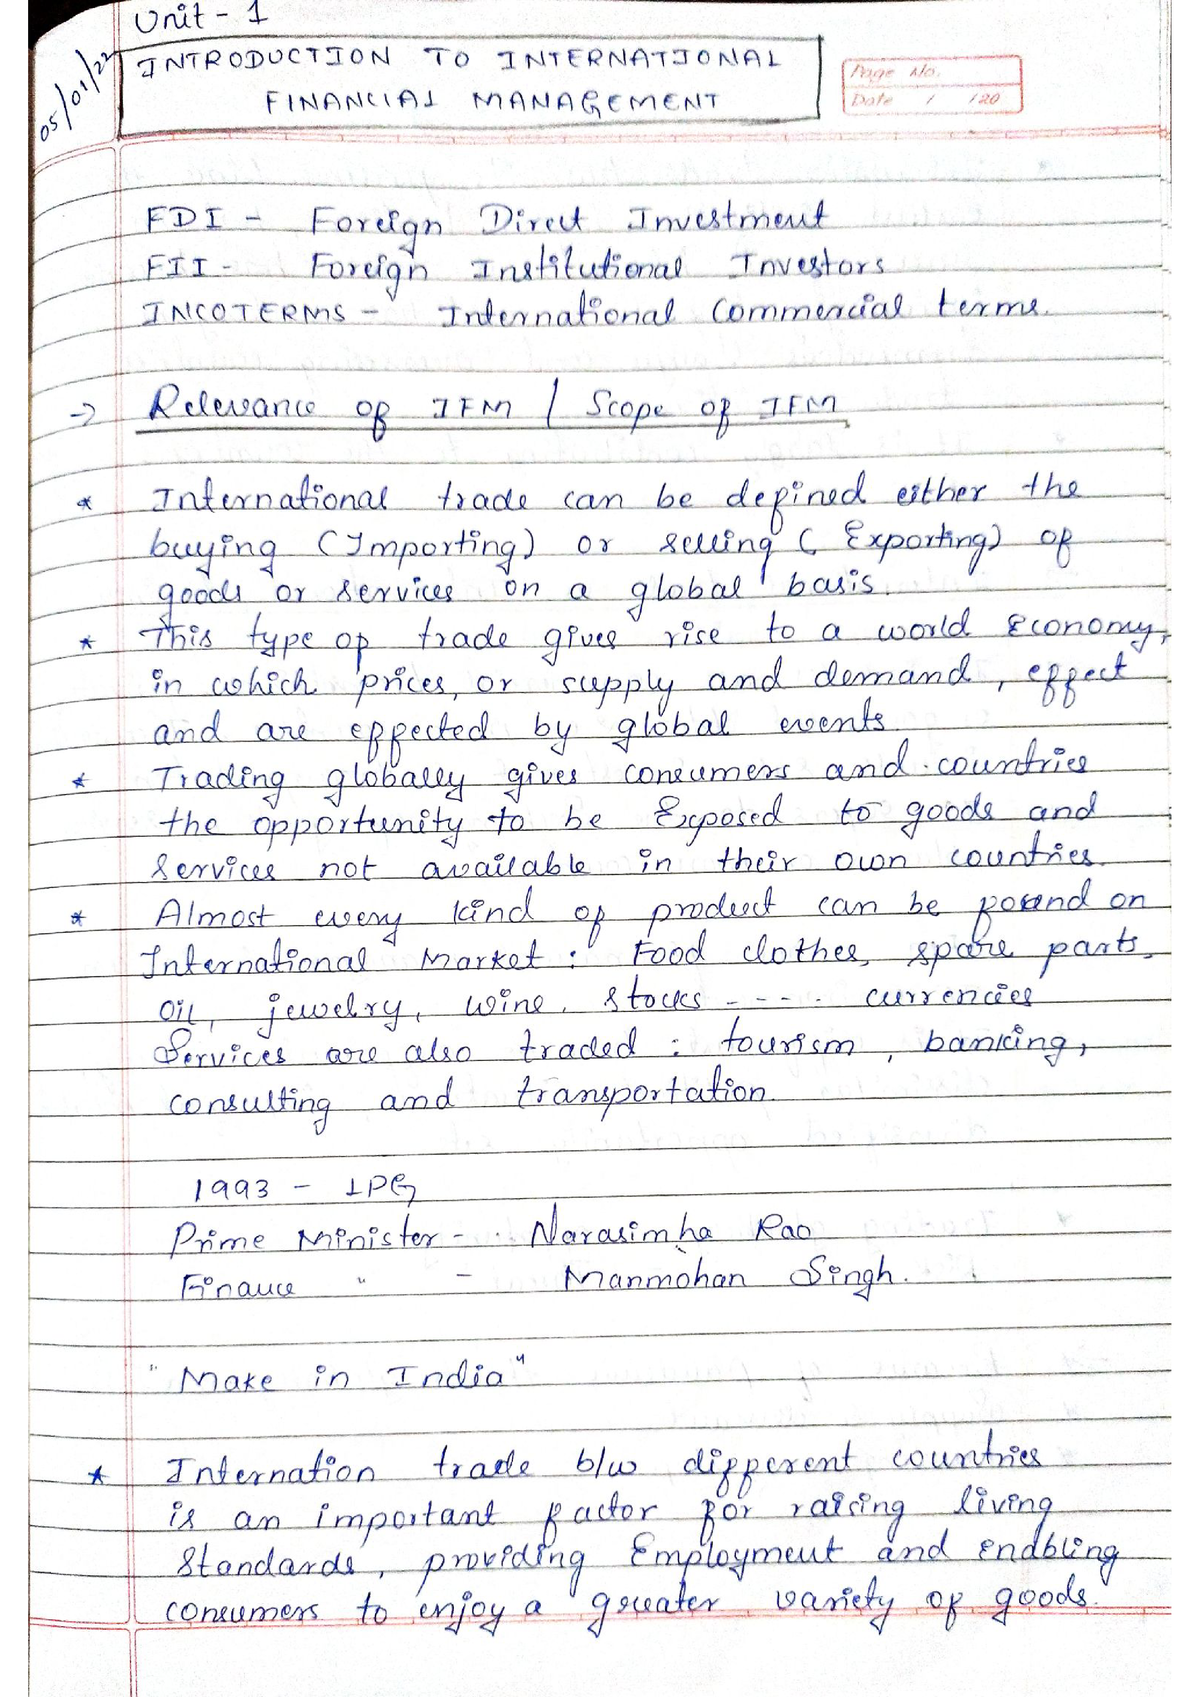 Unit - 1
05/01/22
INTRODUCTION TO INTERNATIONAL
FINANCIAL MANAGEMENT
Page No.
Date / /20
FDI - Foreign Direct Investment
FII - Foreign Institutional Investors
INCOTERMS - International Commercial terms.
→ Relevance of IFM / Scope of IFM
* International trade can be defined either the
buying (Importing) or selling (Exporting) of
goods or services on a global basis.
* This type of trade gives rise to a world Economy,
in which prices, or supply and demand, effect
and are effected by global events
* Trading globally gives consumers and countries
the opportunity to be Exposed to goods and
services not available in their own countries.
* Almost every kind of product can be found on
International Market : Food clothes, spare parts,
oil, jewelry, wine, stocks - - - . currencies
Services are also traded : tourism, banking,
consulting and transportation.
1993 - LPG
Prime Minister - Narasimha Rao
Finance " - Manmohan Singh.
"Make in India"
* Internation trade b/w different countries
is an important factor for raising living
standards, providing Employment and endbling
consumers to enjoy a greater variety of goods.